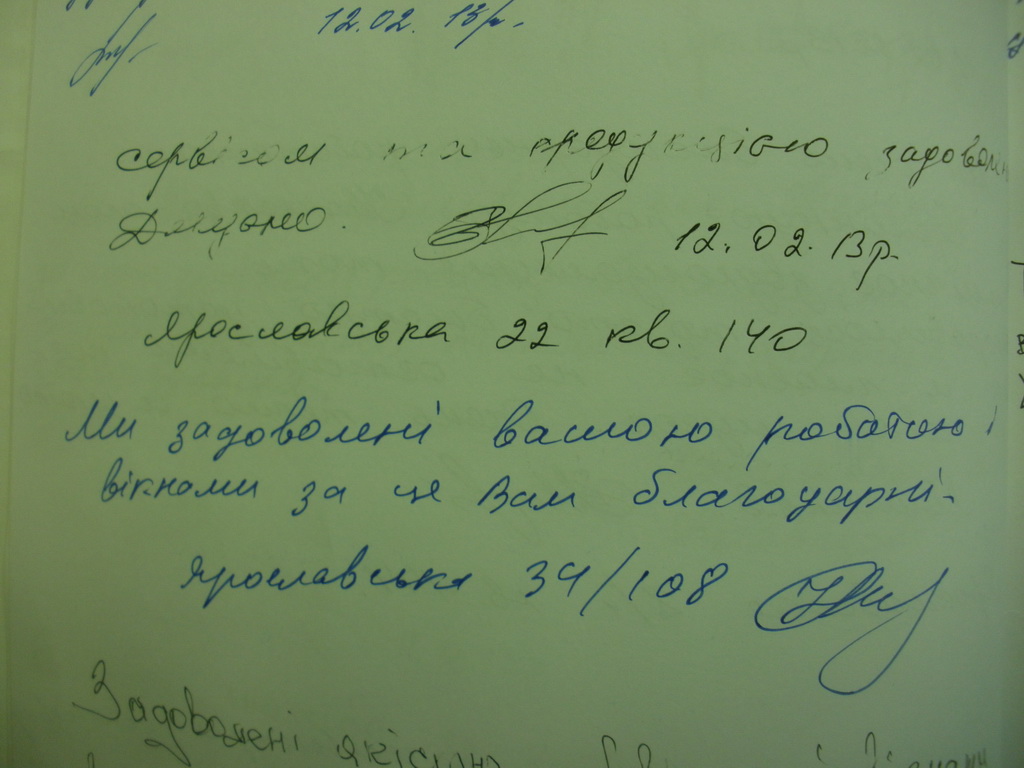 12.02. 13р.
сервісом та продукцією задоволен
Дякуємо. 12.02.13р.
Ярославська 22 кв. 140
Ми задоволені вашою роботою і
вікнами за це Вам благодарні-
Ярославська 34/108
Задоволені якістю